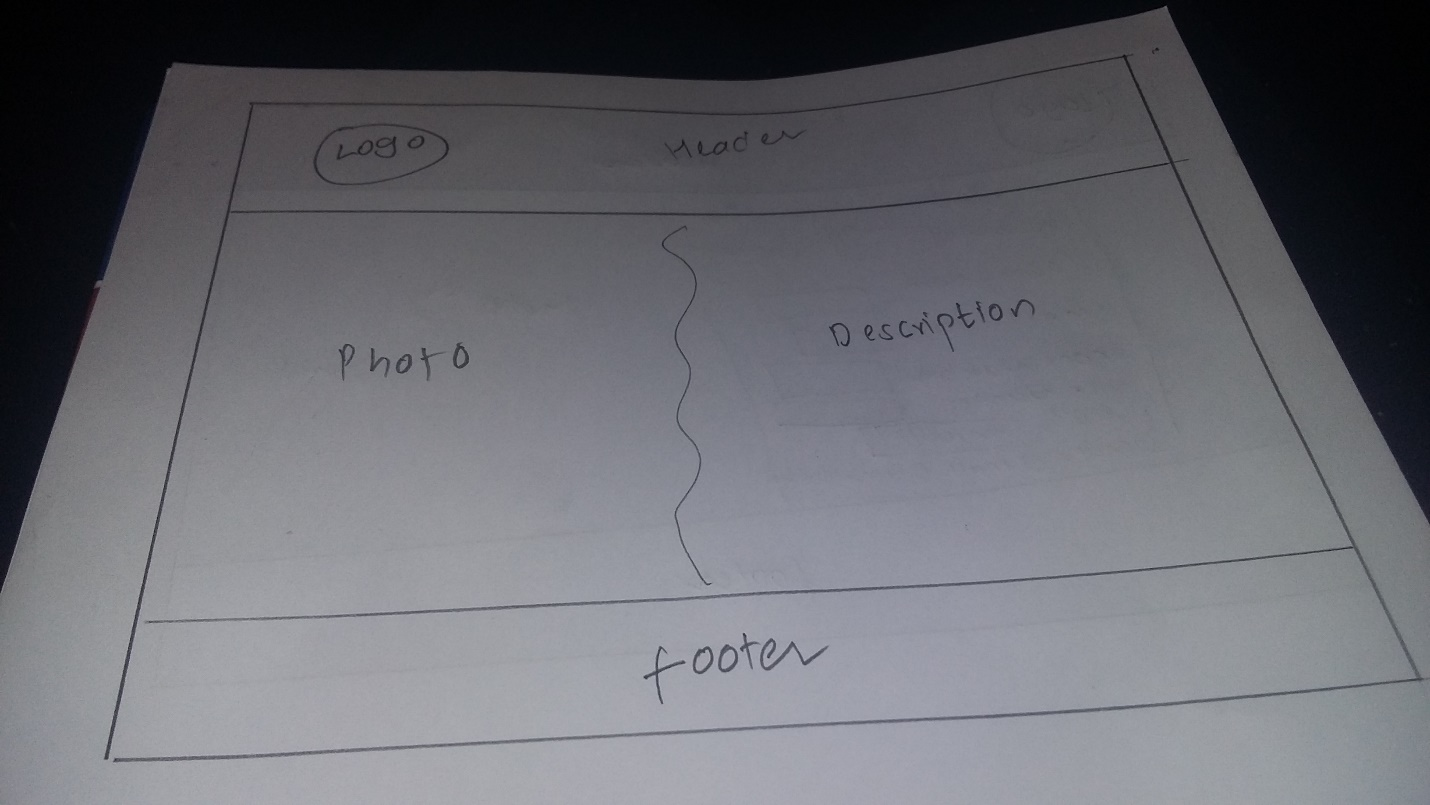 Logo
Header
Photo
Description
footer